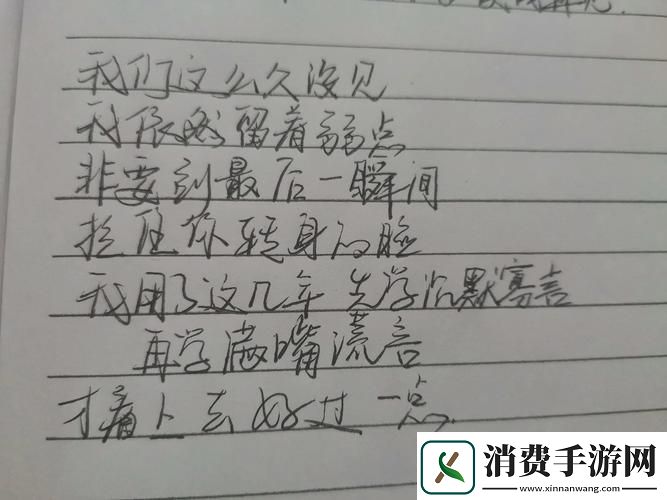 我们这么久没见
我依然留着弱点
非要到最后一瞬间
拉住你转身的脸
我用了这几年 先学沉默寡言
再学满嘴谎言
才痛 去好过一点
消费手游网
www.xinnanwang.com